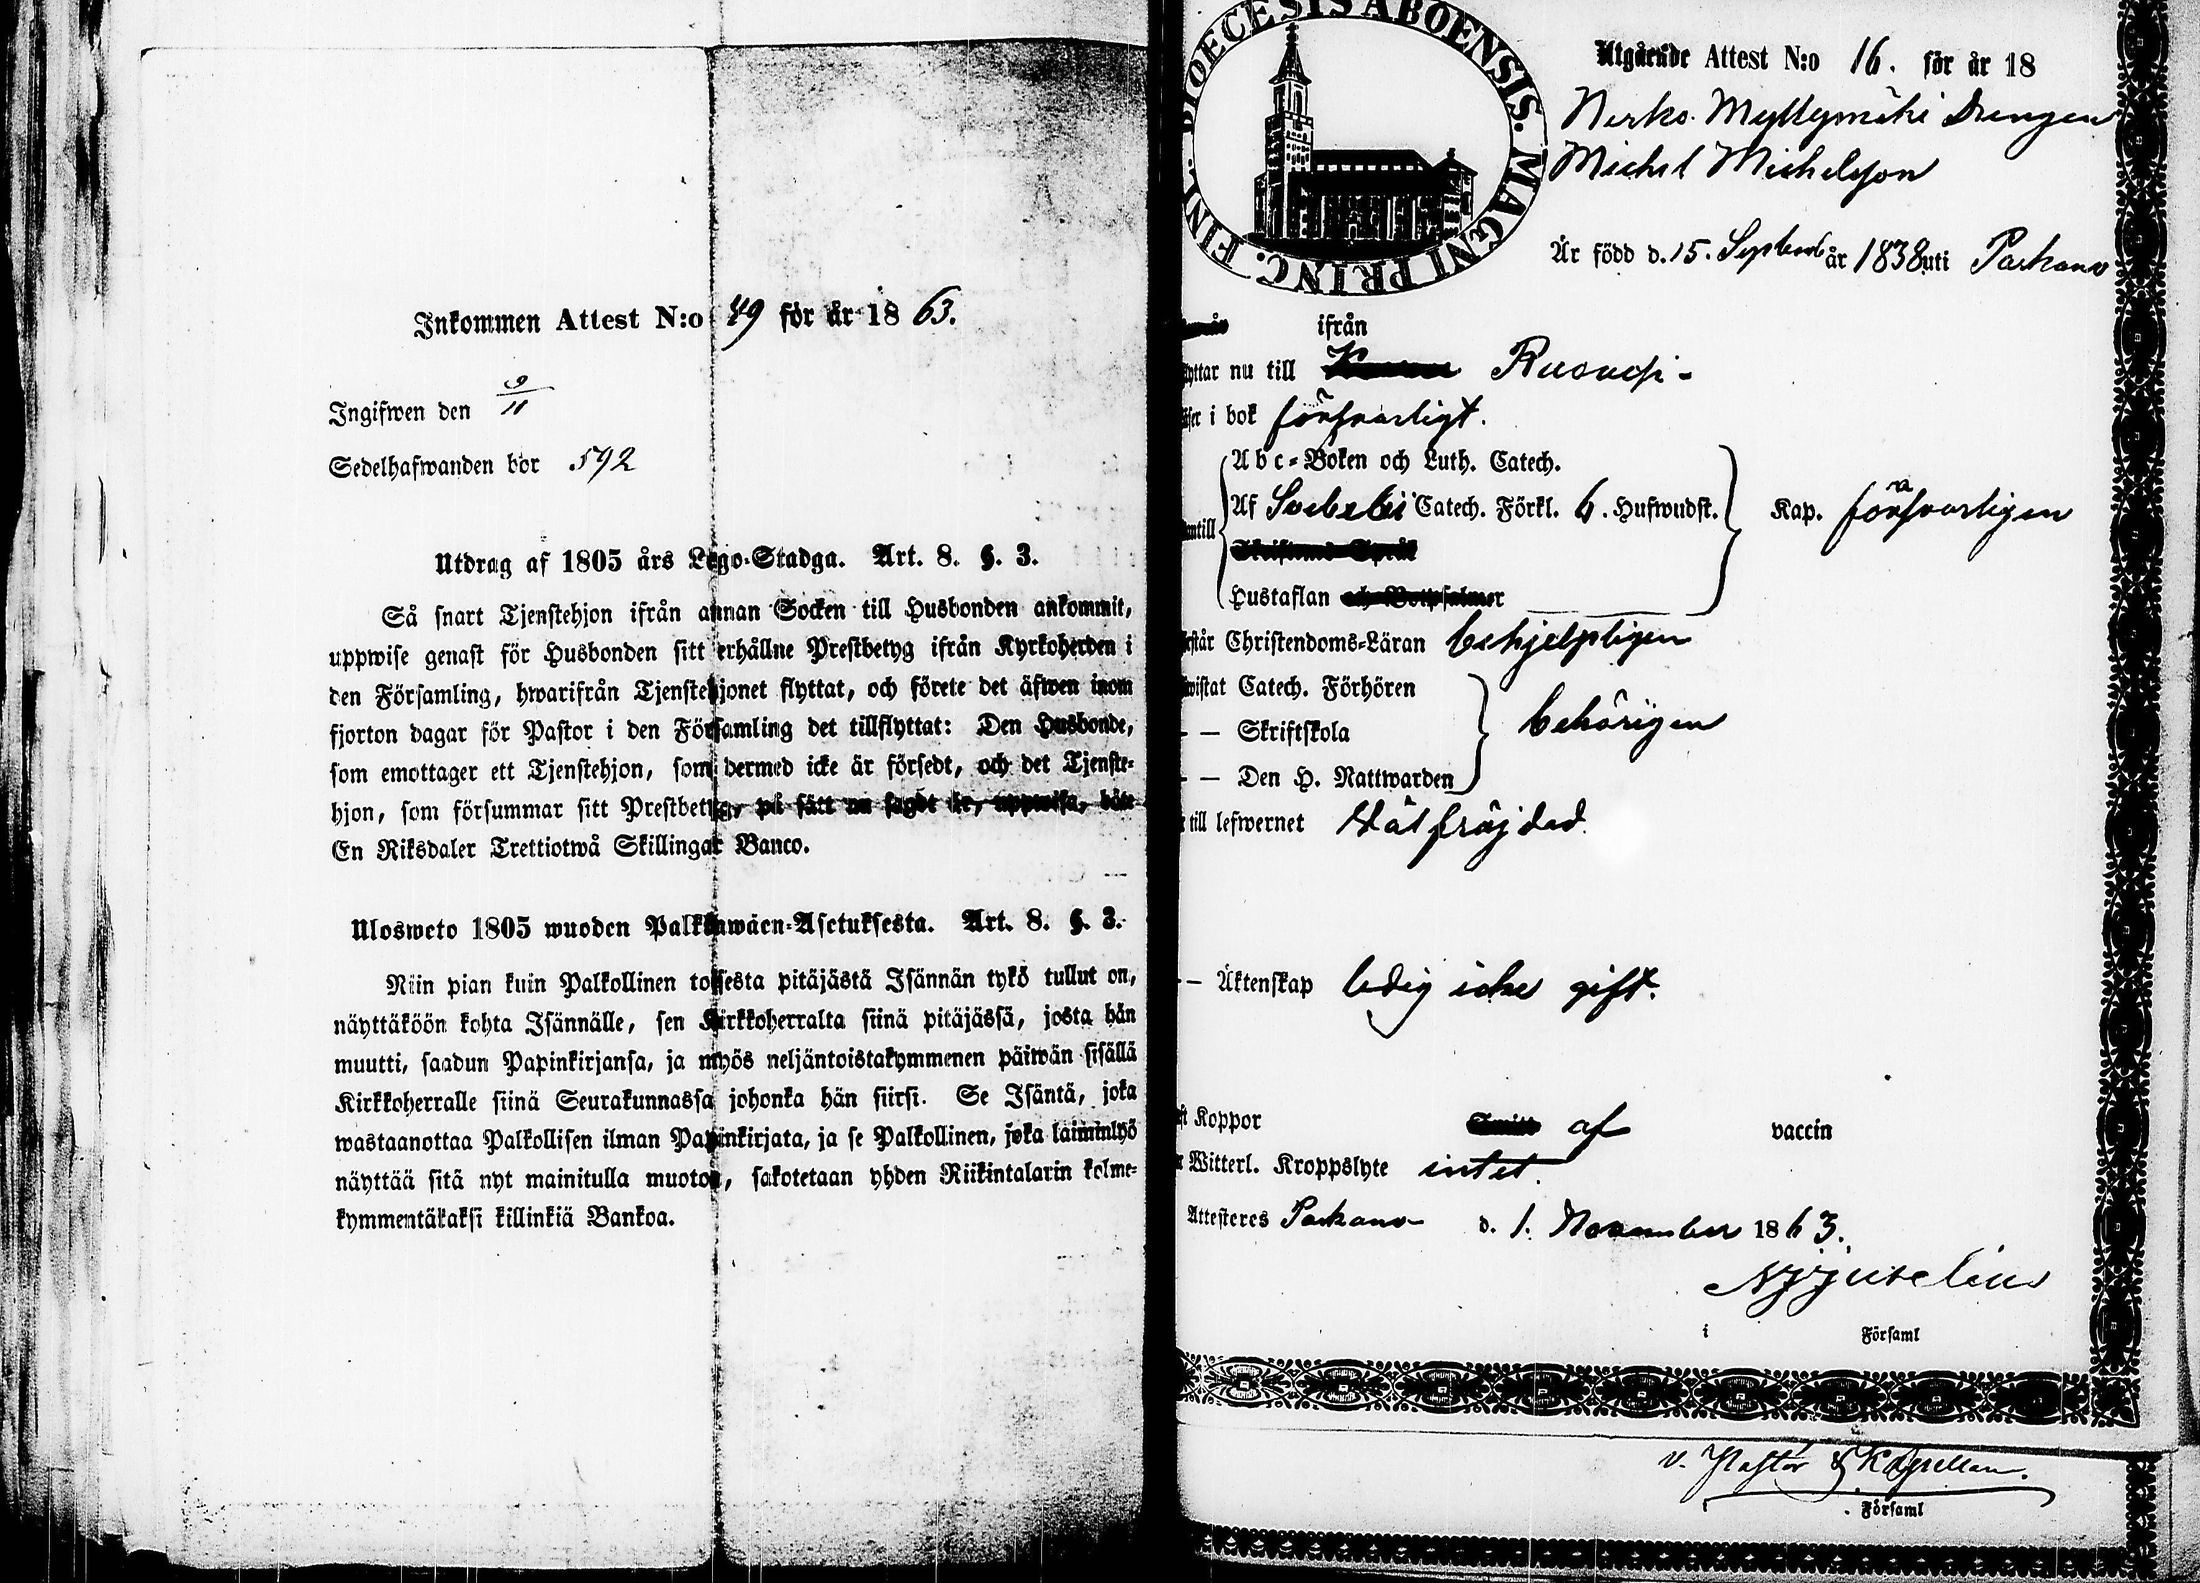 Inkommen Attest N:o 49 för år 18 63.
Ingifwen den 9/11
Sedelhafwanden bor 592
Utdrag af 1805 års Lego-Stadga. Art. 8. §. 3.
Så snart Tjenstehjon ifrån annan Socken till Husbonden ankommit,
uppwise genast för Husbonden sitt erhållne Prestbetyg ifrån Kyrkoherden i
den Församling, hwarifrån Tjenstehjonet flyttat, och förete det äfwen inom
fjorton dagar för Pastor i den Församling det tillflyttat: Den Husbonde,
som emottager ett Tjenstehjon, som dermed icke är försedt, och det Tjenste-
hjon, som försummar sitt Prestbetyg, på sätt nu sagdt är, uppwisa, böte
En Riksdaler Trettiotwå Skillingar Banco.
Ulosweto 1805 wuoden Palkkawäen-Asetuksesta. Art. 8. §. 3.
Niin pian kuin Palkollinen toisesta pitäjästä Isännän tykö tullut on,
näyttäköön kohta Isännälle, sen Kirkkoherralta siinä pitäjässä, josta hän
muutti, saadun Papinkirjansa, ja myös neljäntoistakymmenen päiwän sisällä
Kirkkoherralle siinä Seurakunnassa johonka hän siirsi. Se Isäntä, joka
wastaanottaa Palkollisen ilman Papinkirjata, ja se Palkollinen, joka laiminlyö
näyttää sitä nyt mainitulla muotoa, sakotetaan yhden Riikintalarin kolme-
kymmentäkaksi killinkiä Bankoa.
DIOECESIS ABOENSIS. MAGNI PRINC. FINL.
Utgående Attest N:o 16. för år 18
Myllymäki Drengen
Michel Michelsson
Är född d. 15. September år 1838 uti Parkano
ifrån
flyttar nu till Ruovesi -
läser i bok försvarligt.
Abc-Boken och Luth. Catech.
Af Svebelii Catech. Förkl. 6. Hufwudst. Kap. försvarligen
Hustaflan
Christendoms-Läran behjelpligen
wistat Catech. Förhören
- - Skriftskola behörigen
- - Den H. Nattwarden
till lefwernet Wälfräjdad.
- - Äktenskap ledig icke gift.
Koppor af vaccin
Witterl. Kroppslyte intet.
Attesteres Parkano d. 1. November 1863.
i Församl
v. Pastor & Kapellan.
Församl